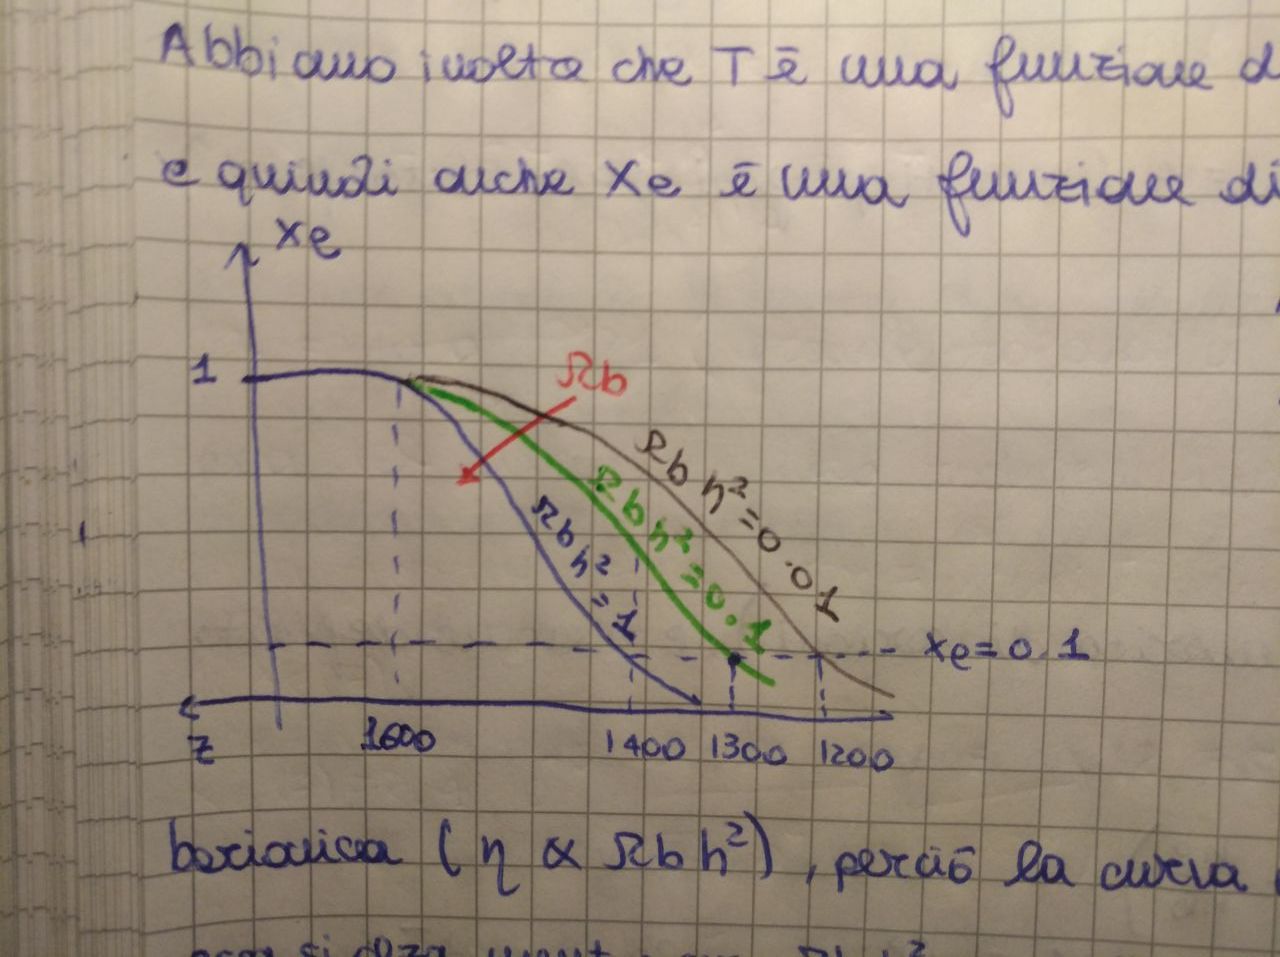 Abbiamo inoltre che T è una funzione d
e quindi anche Xe è una funzione di
Xe
1
Ωb
Ωb h² = 0.01
Ωb h² = 0.1
Ωb h² = 1
Xe = 0.1
z
1600
1400
1300
1200
barionica (η ∝ Ωb h²), perciò la curva